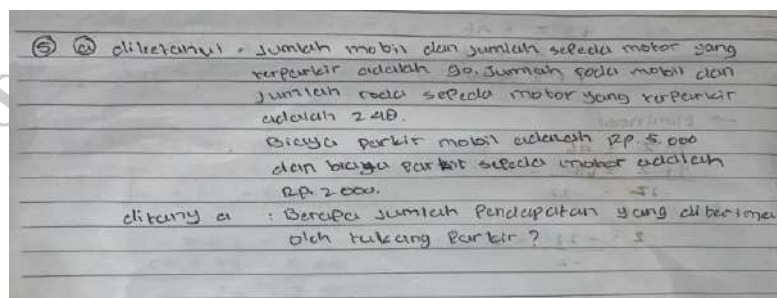 ⑤ ⓐ diketahui : Jumlah mobil dan jumlah sepeda motor yang
terparkir adalah 90. Jumlah roda mobil dan
jumlah roda sepeda motor yang terparkir
adalah 248.
Biaya parkir mobil adalah Rp. 5.000
dan biaya parkir sepeda motor adalah
Rp. 2000.
ditanya : Berapa jumlah Pendapatan yang diterima
oleh tukang Parkir ?